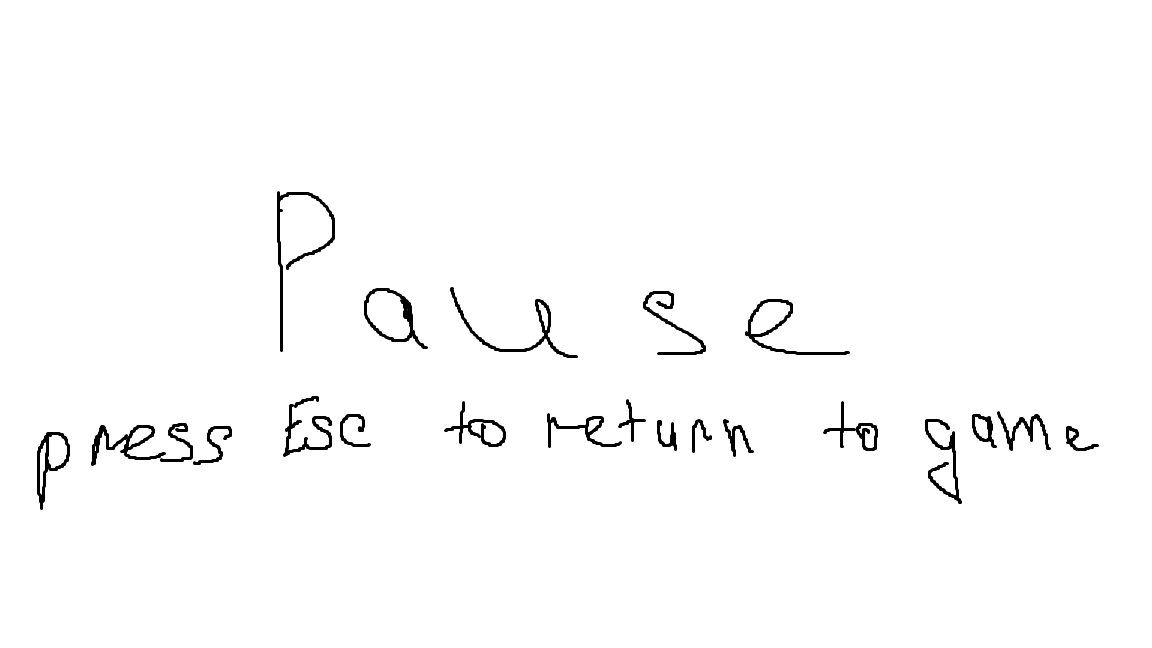 Pause
press Esc to return to game